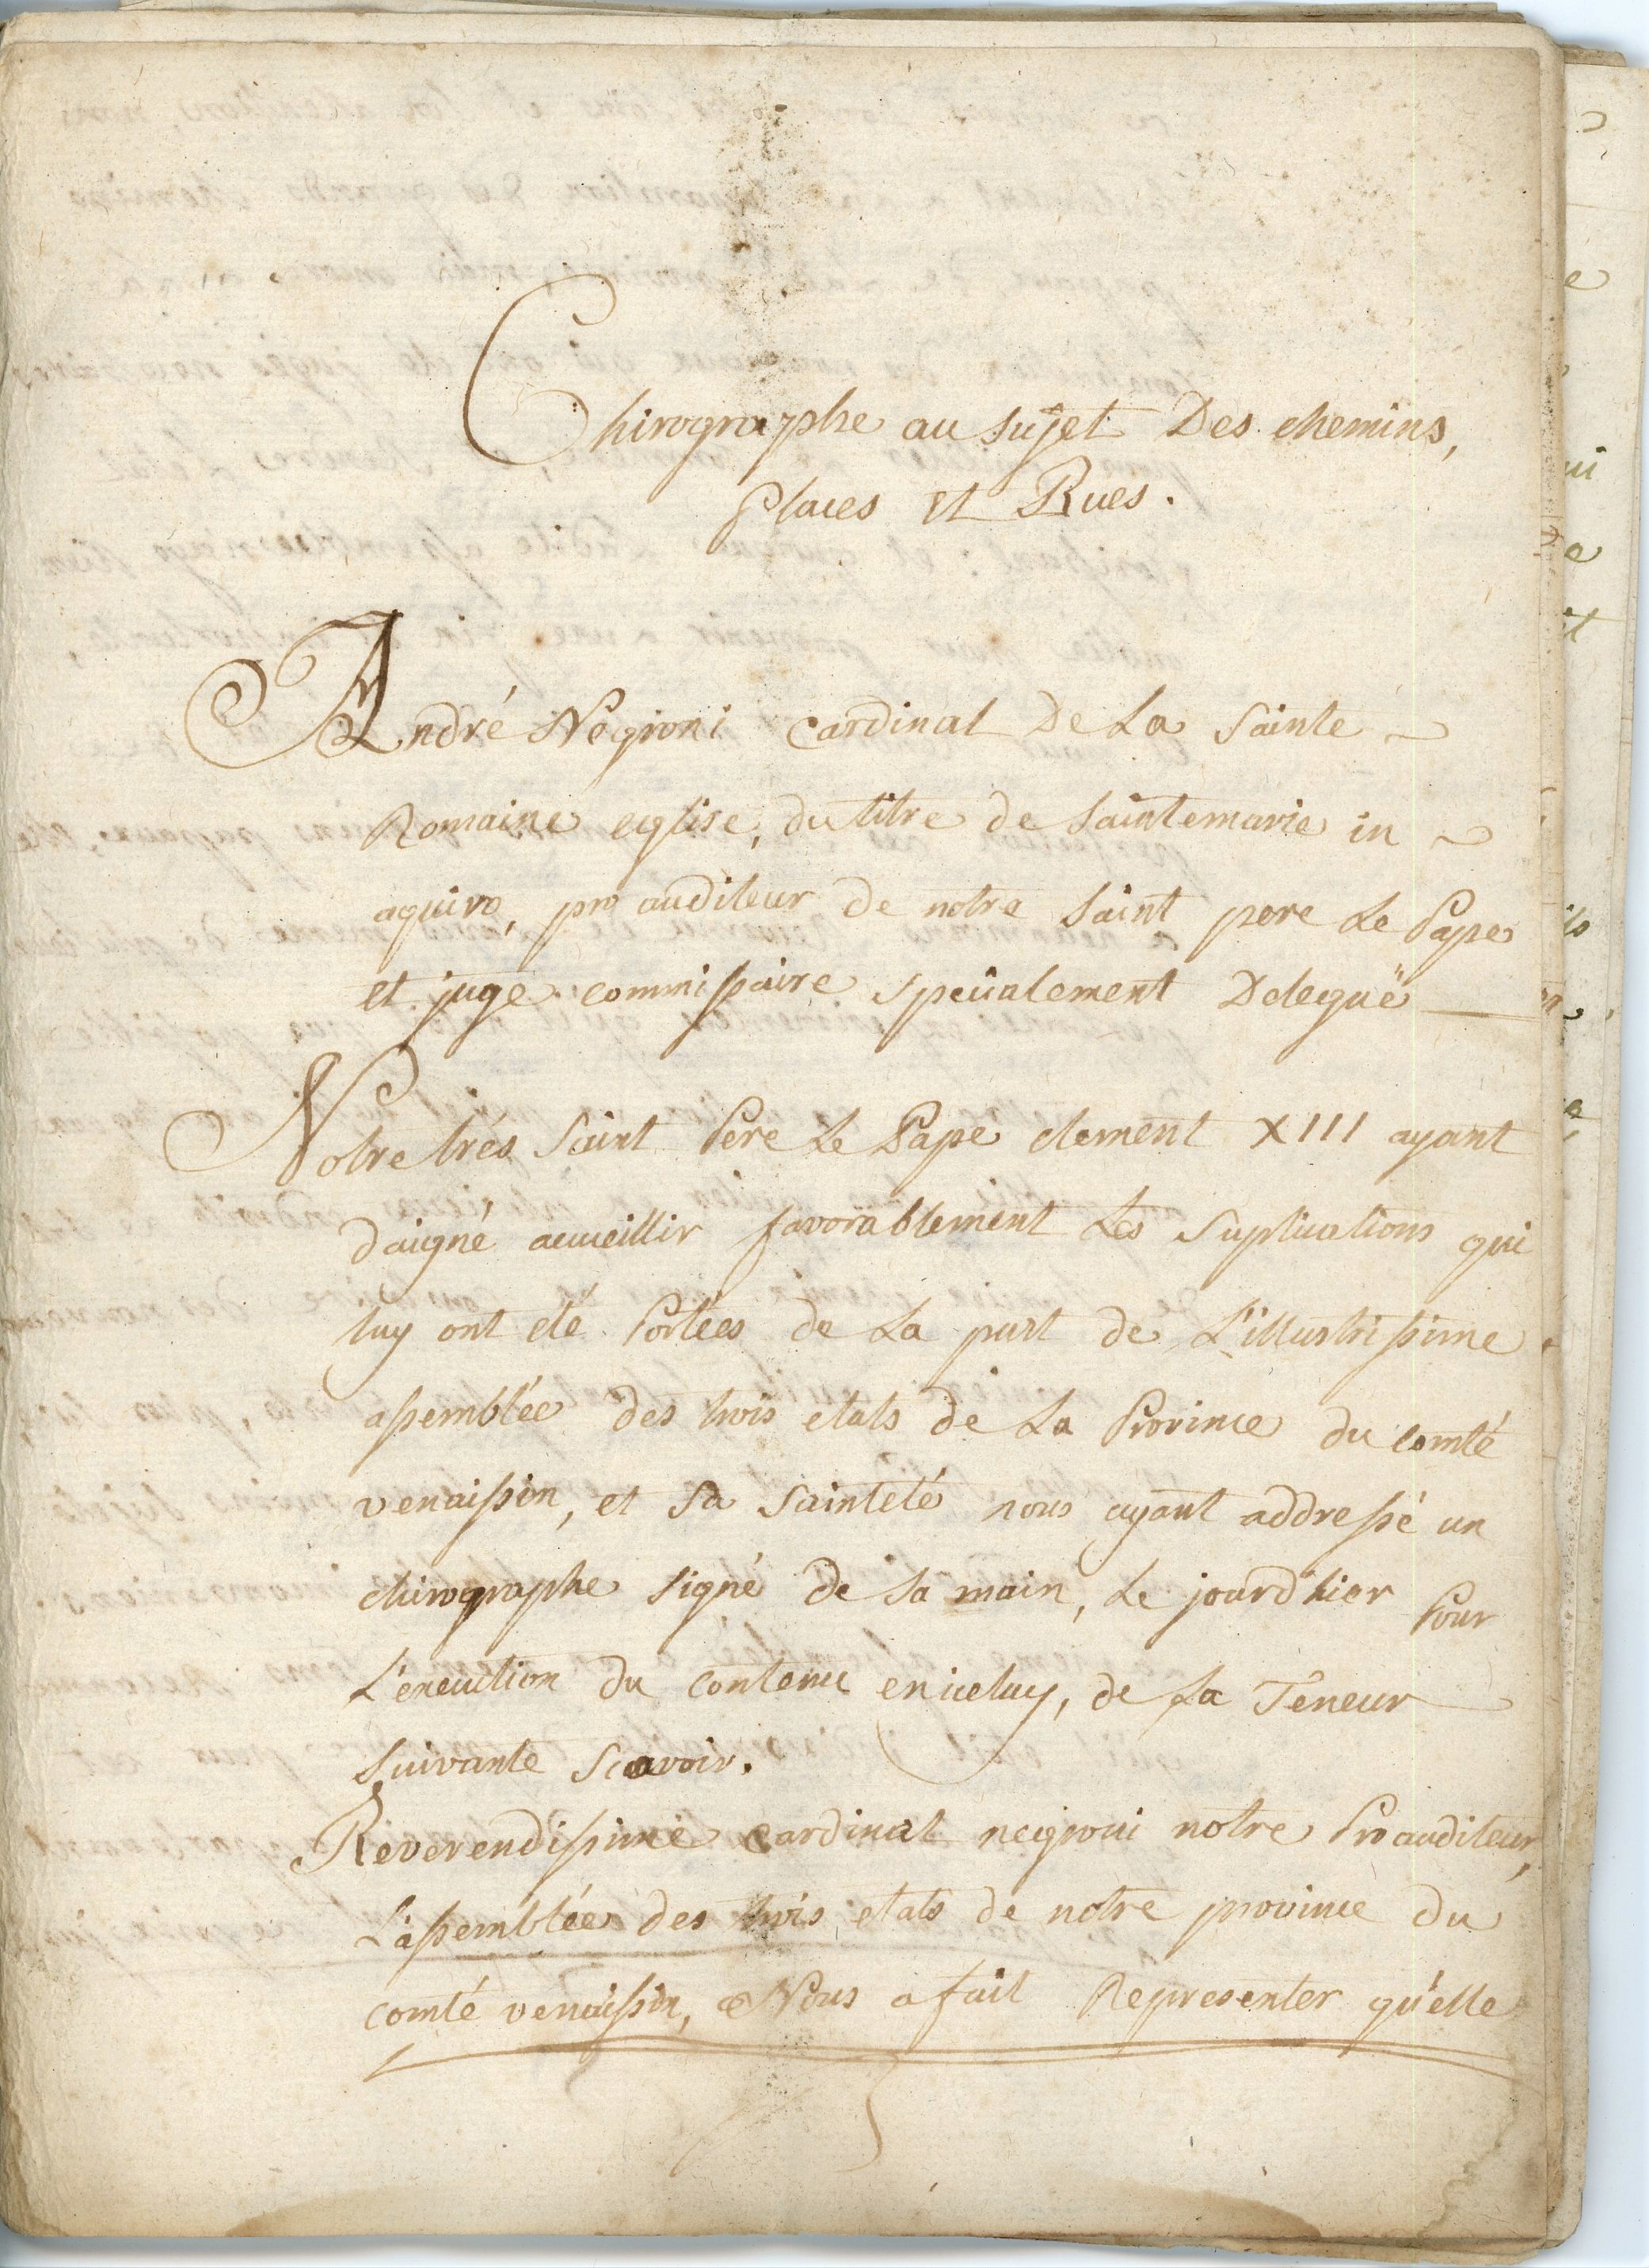 Chirographe au sujet Des chemins,
Places et Rues.
André Negroni Cardinal De La Sainte
Romaine eglise, du titre de Saintemarie in
aquiro, pro auditeur de notre Saint pere Le Pape
et juge commissaire specialement Deleguë
Notre trés Saint Pere Le Pape clement XIII ayant
daigné accueillir favorablement Les Suplications qui
luy ont été Portées de La part de L'illustrissime
assemblée des trois etats de La Province du comté
venaissin, et Sa Sainteté nous ayant addressé un
chirographe signé de sa main, Le jourd'hier Pour
L'execution du contenu en iceluy, de La Teneur
Suivante Scavoir.
Reverendissime Cardinal negroni notre Proauditeur,
L'assemblée des trois etats de notre province du
comté venaissin, Nous a fait Representer qu'elle